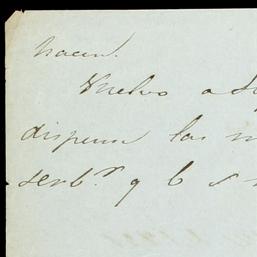 hacer.
Vuelvo a su
dispense las m
serbr q b s m